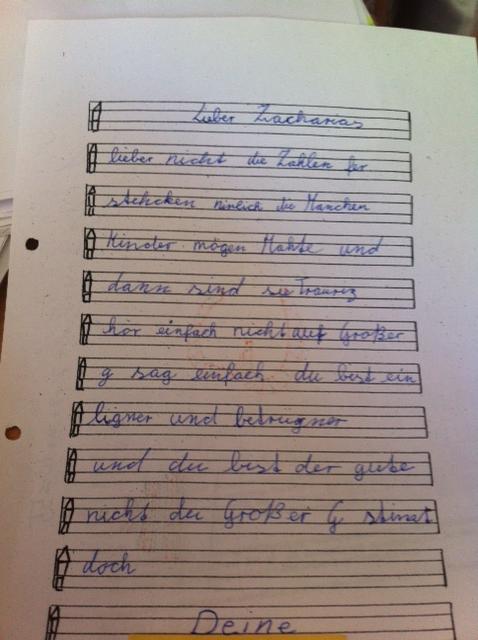 Lieber Zacharias
lieber nicht die Zahlen fer
stehcken nämlich die Manchen
Kinder mögen Mahte und
dann sind sie Traurig
hör einfach nicht auf Großer
g sag einfach du best ein
ligner und betrügner
und du best der gute
nicht du Großer G stimt
doch
Deine